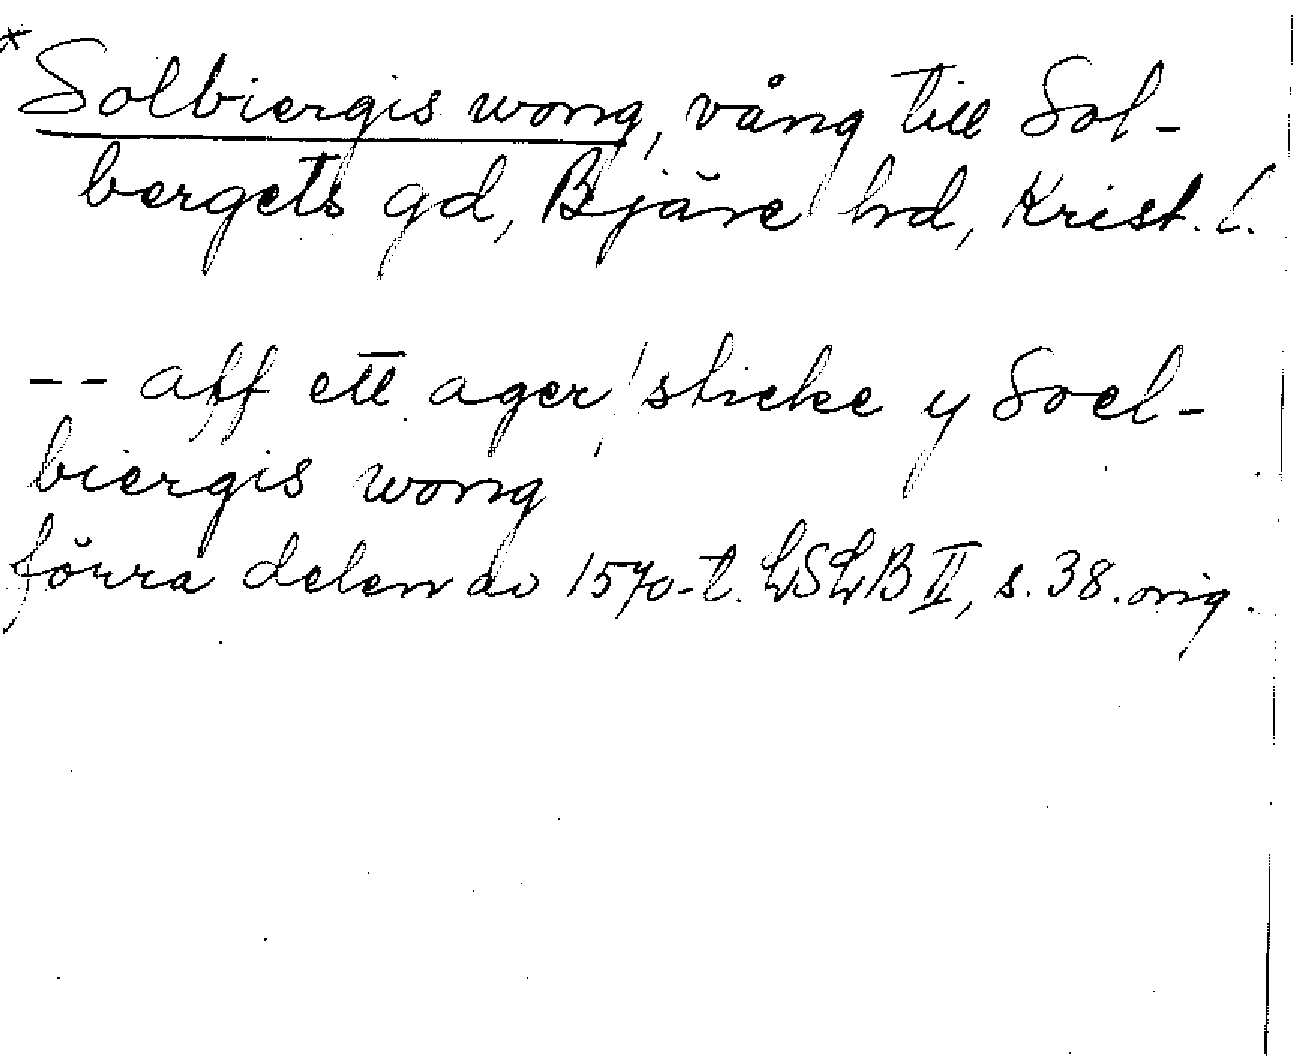 *Solbiergis wong, vång till Sol-
bergets gd, Bjäre hd, Krist. l.
-- aff ett ager/sticke y Soel-
biergis wong
förra delen av 1570-t. LSLB II, s. 38. orig.